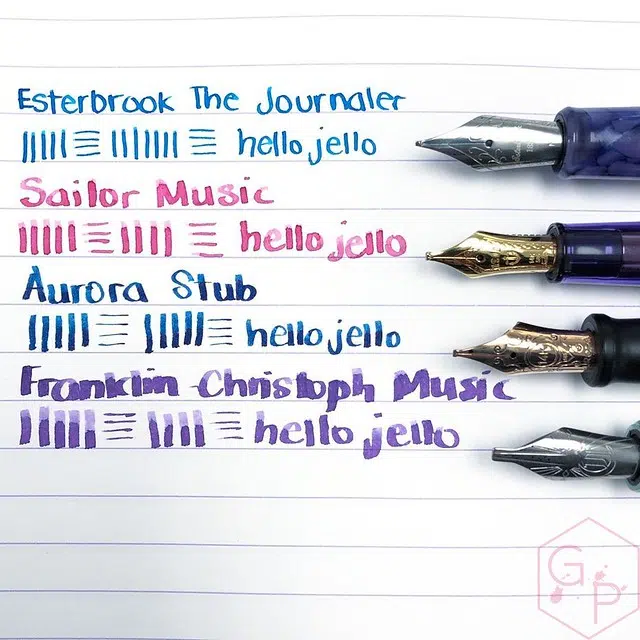 Esterbrook The Journaler
hello jello
Sailor Music
hello jello
Aurora Stub
hello jello
Franklin-Christoph Music
hello jello
G P